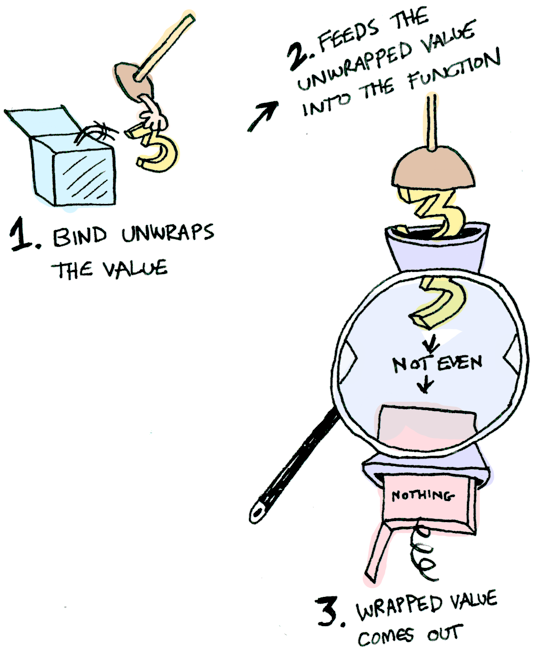 3
1. BIND UNWRAPS
THE VALUE
2. FEEDS THE
UNWRAPPED VALUE
INTO THE FUNCTION
3
3
NOT EVEN
NOTHING
3. WRAPPED VALUE
COMES OUT